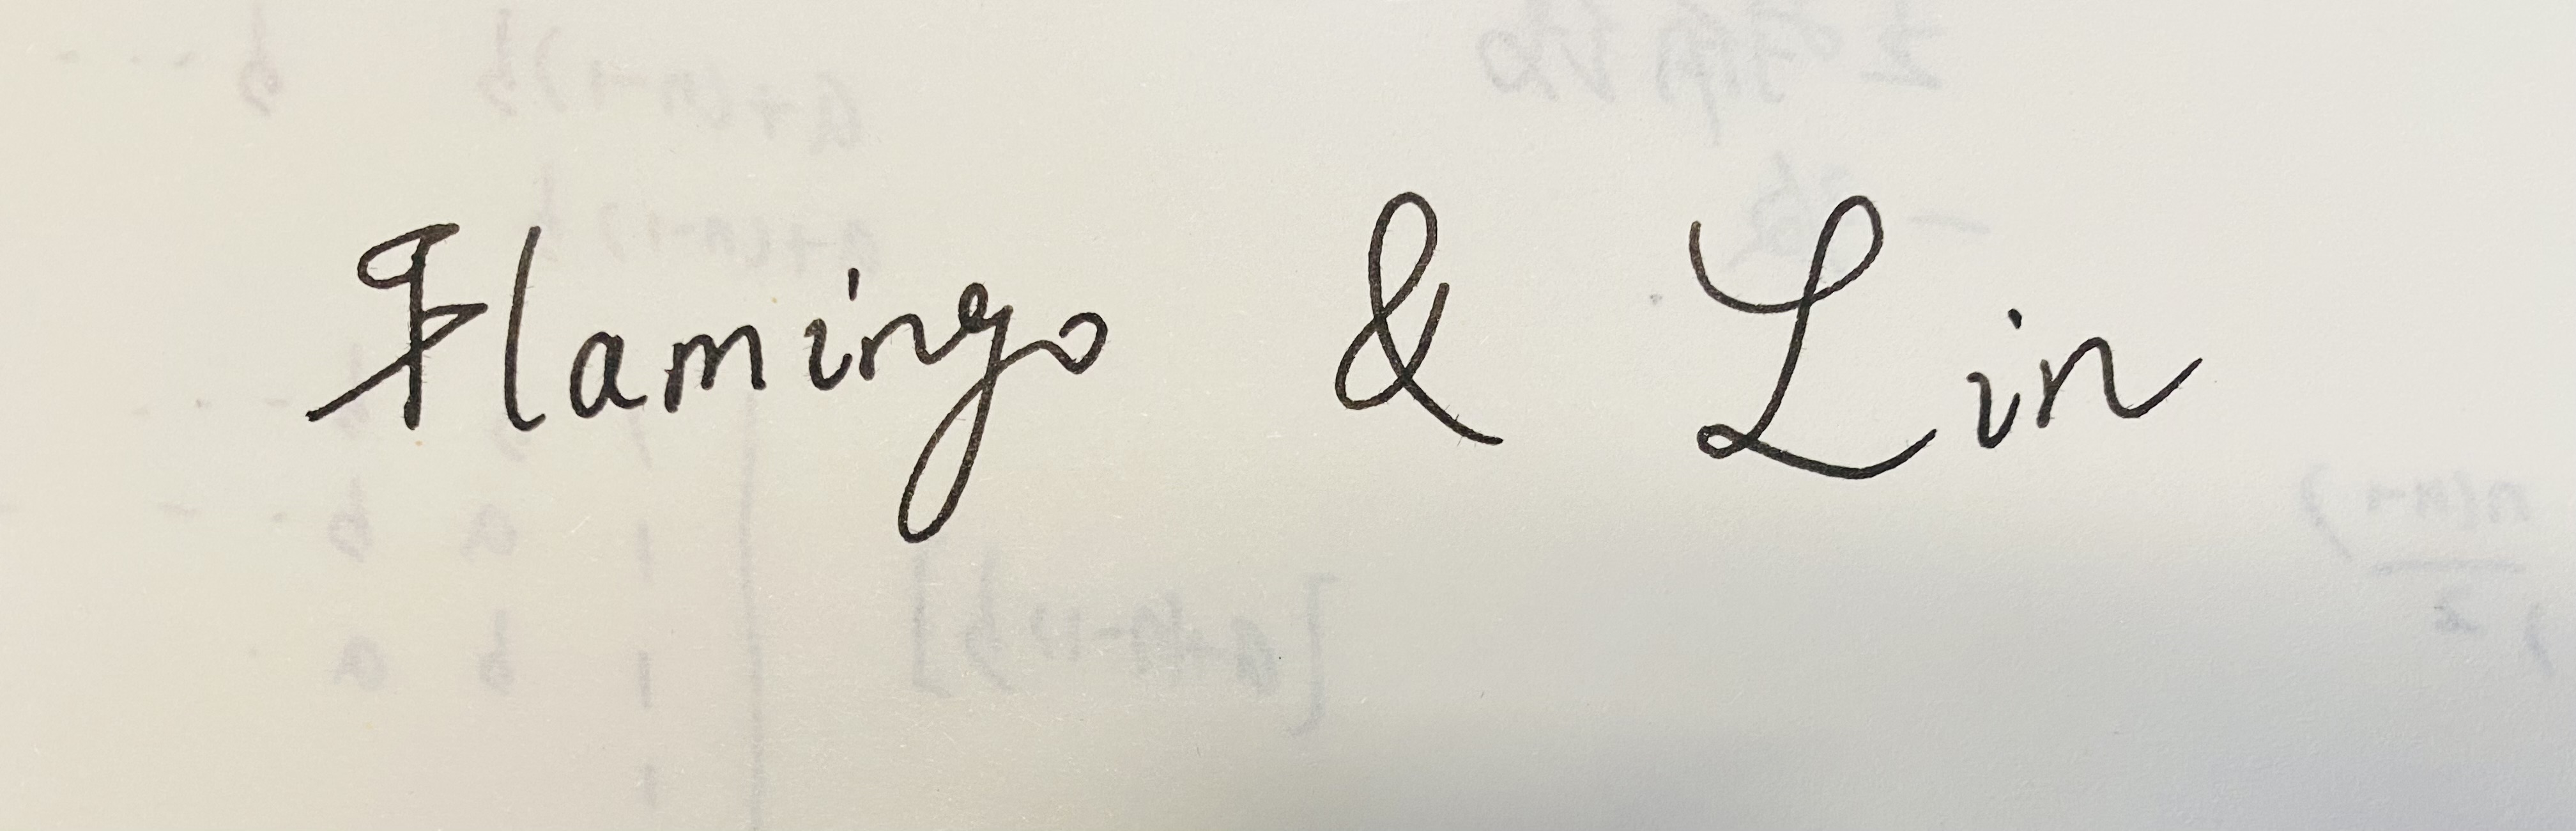 Flamingo & Lin